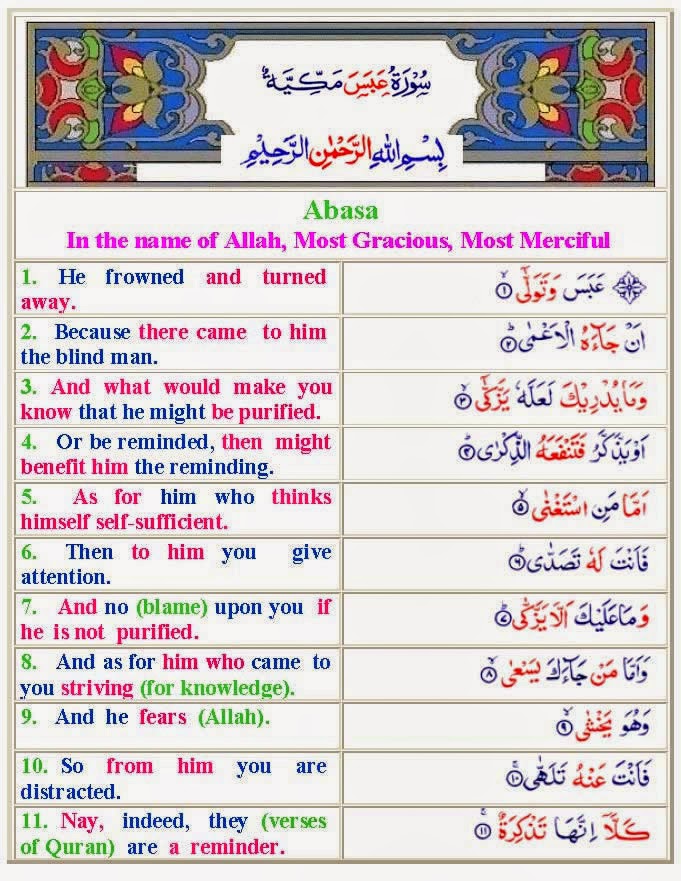 سُوْرَةُ عَبَسَ مَكِّيَّةٌ
بِسْمِ اللهِ الرَّحْمٰنِ الرَّحِيْمِ
Abasa
In the name of Allah, Most Gracious, Most Merciful
1. He frowned and turned
away.
عَبَسَ وَتَوَلّٰٓى ۙ۱
2. Because there came to him
the blind man.
اَنْ جَآءَهُ الْاَعْمٰى ؕ۲
3. And what would make you
know that he might be purified.
وَمَا يُدْرِيْكَ لَعَلَّهٗ يَزَّكّٰٓى ۙ۳
4. Or be reminded, then might
benefit him the reminding.
اَوْ يَذَّكَّرُ فَتَنْفَعَهُ الذِّكْرٰى ؕ۴
5. As for him who thinks
himself self-sufficient.
اَمَّا مَنِ اسْتَغْنٰى ۙ۵
6. Then to him you give
attention.
فَاَنْتَ لَهٗ تَصَدّٰى ؕ۶
7. And no (blame) upon you if
he is not purified.
وَمَا عَلَيْكَ اَلَّا يَزَّكّٰى ؕ۷
8. And as for him who came to
you striving (for knowledge).
وَاَمَّا مَنْ جَآءَكَ يَسْعٰى ۙ۸
9. And he fears (Allah).
وَهُوَ يَخْشٰى ۙ۹
10. So from him you are
distracted.
فَاَنْتَ عَنْهُ تَلَهّٰى ۚ۱۰
11. Nay, indeed, they (verses
of Quran) are a reminder.
كَلَّاۤ اِنَّهَا تَذْكِرَةٌ ۚ۱۱